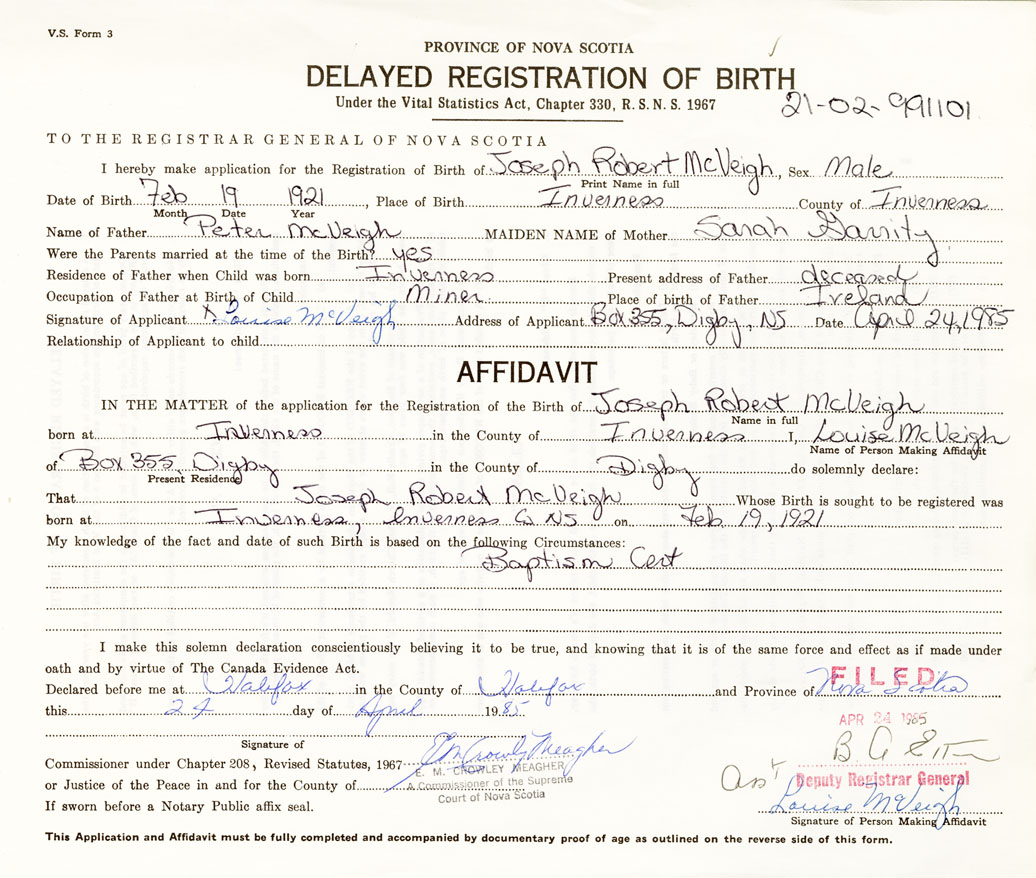 V.S. Form 3
PROVINCE OF NOVA SCOTIA
DELAYED REGISTRATION OF BIRTH
Under the Vital Statistics Act, Chapter 330, R.S.N.S. 1967
21-02-991101
TO THE REGISTRAR GENERAL OF NOVA SCOTIA
I hereby make application for the Registration of Birth of Joseph Robert McVeigh, Sex Male
Print Name in full
Date of Birth Feb 19 1921, Place of Birth Inverness County of Inverness
Month Date Year
Name of Father Peter McVeigh MAIDEN NAME of Mother Sarah Garrity
Were the Parents married at the time of the Birth? yes
Residence of Father when Child was born Inverness Present address of Father deceased
Occupation of Father at Birth of Child Miner Place of birth of Father Ireland
Signature of Applicant X Louise McVeigh Address of Applicant Box 355, Digby, NS Date April 24, 1985
Relationship of Applicant to child
AFFIDAVIT
IN THE MATTER of the application for the Registration of the Birth of Joseph Robert McVeigh
Name in full
born at Inverness in the County of Inverness I, Louise McVeigh
Name of Person Making Affidavit
of Box 355, Digby in the County of Digby do solemnly declare:
Present Residence
That Joseph Robert McVeigh Whose Birth is sought to be registered was
born at Inverness, Inverness Co NS on Feb 19, 1921
My knowledge of the fact and date of such Birth is based on the following Circumstances:
Baptism Cert
I make this solemn declaration conscientiously believing it to be true, and knowing that it is of the same force and effect as if made under
oath and by virtue of The Canada Evidence Act.
FILED
Declared before me at Halifax in the County of Halifax and Province of Nova Scotia
this 24 day of April 1985
APR 24 1985
Signature of E M Crowley Meagher
Commissioner under Chapter 208, Revised Statutes, 1967
E. M. CROWLEY MEAGHER
or Justice of the Peace in and for the County of
A Commissioner of the Supreme
Court of Nova Scotia
Asst Deputy Registrar General
If sworn before a Notary Public affix seal.
Louise McVeigh
Signature of Person Making Affidavit
This Application and Affidavit must be fully completed and accompanied by documentary proof of age as outlined on the reverse side of this form.